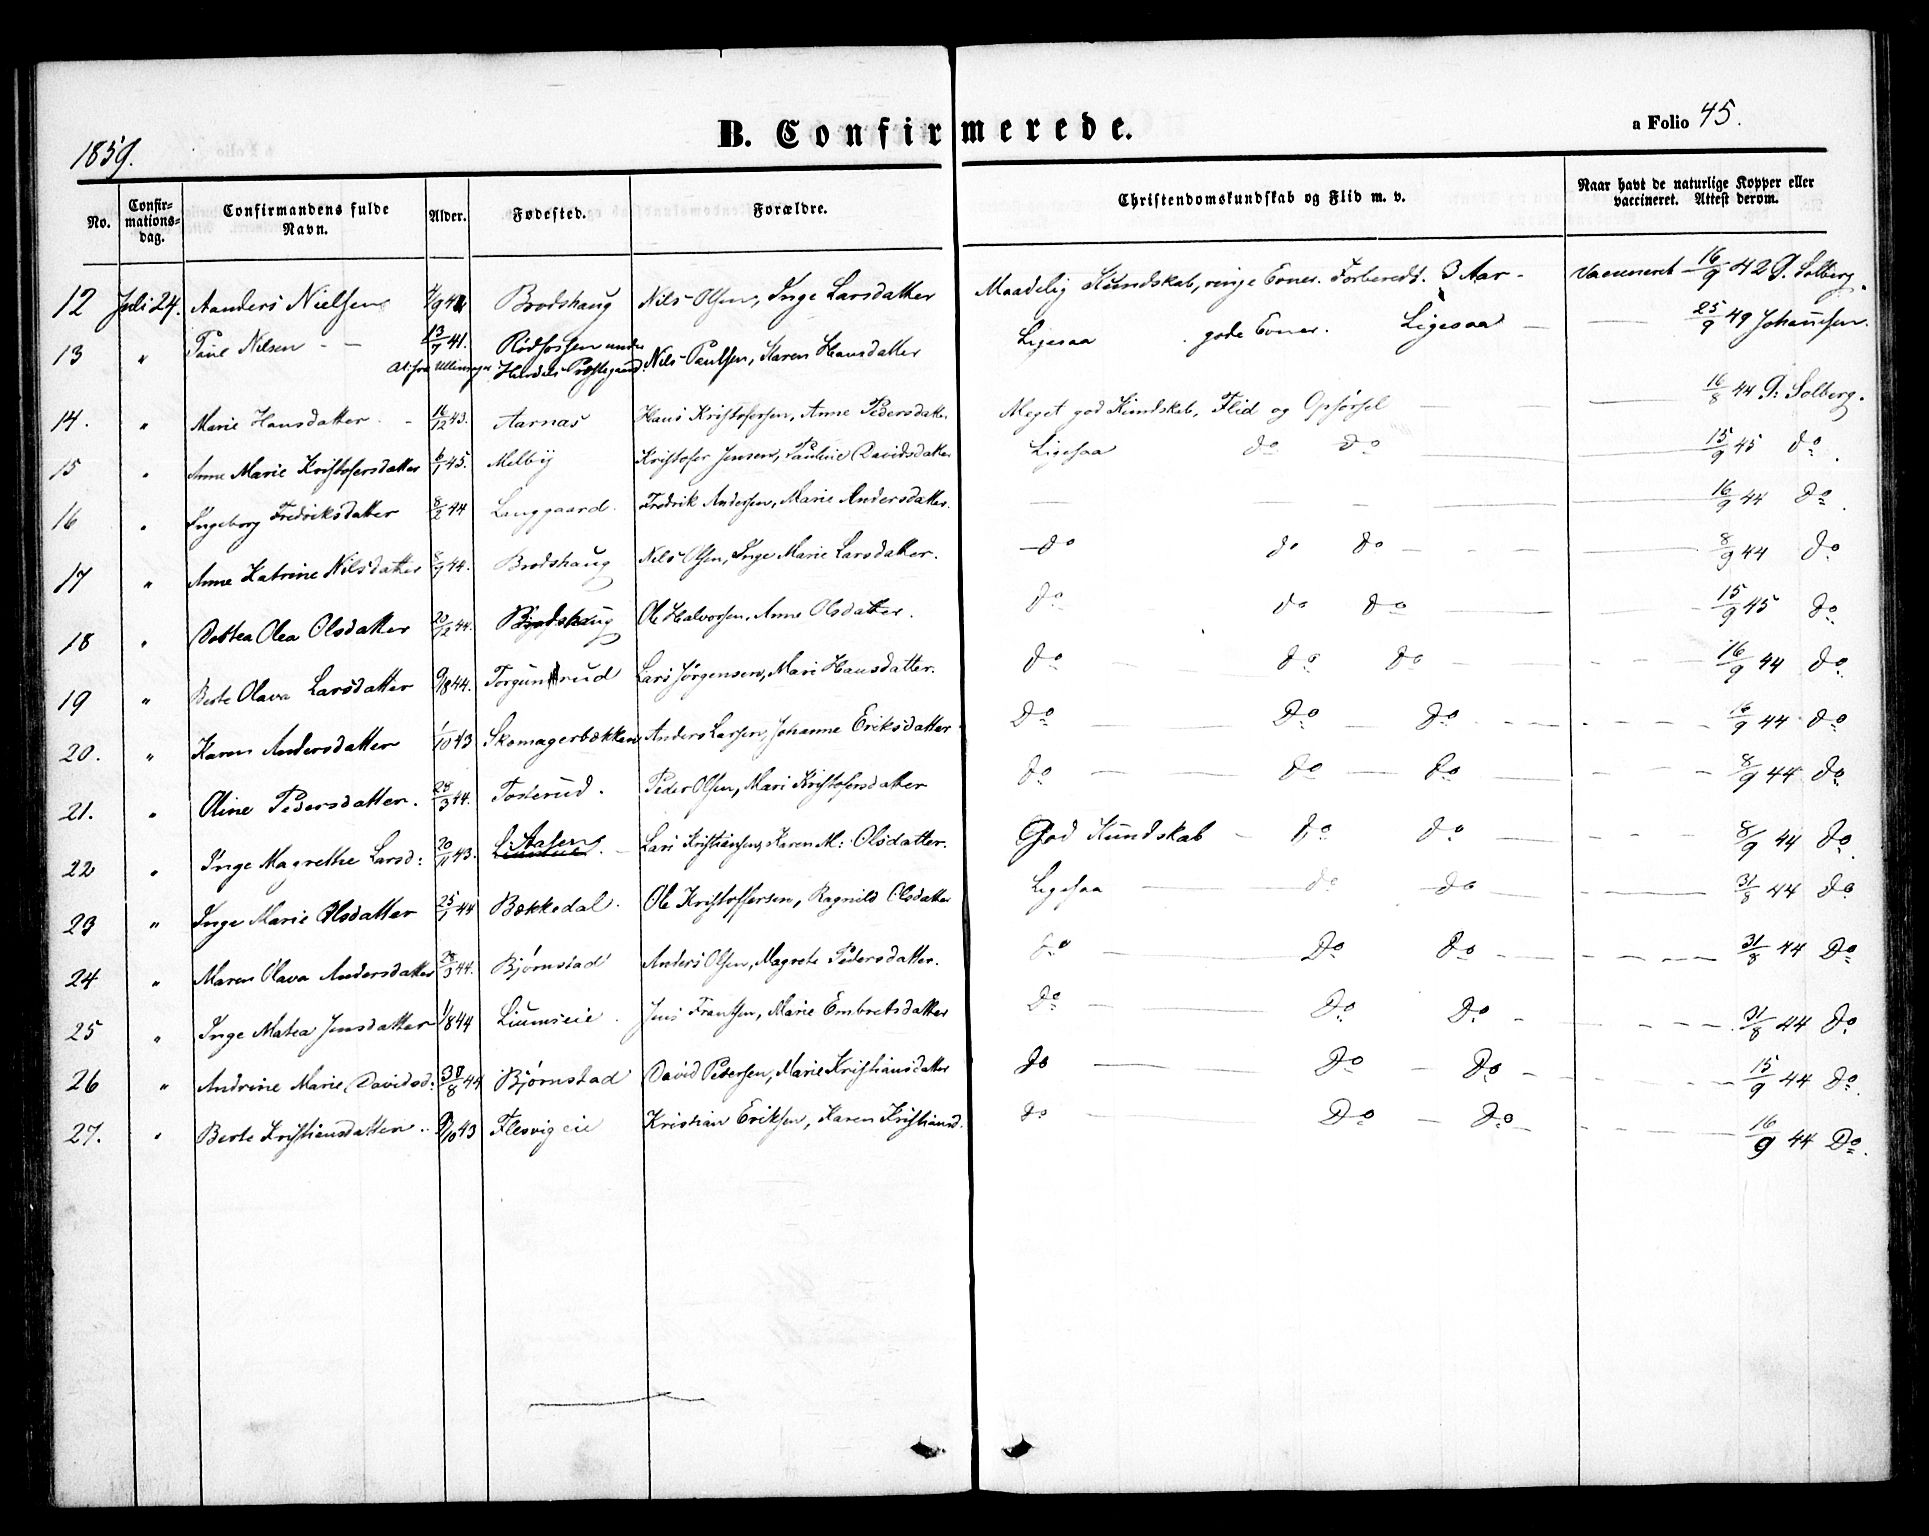 1859.
B. Confirmerede.
a Folio 45.
No. Confirmationsdag. Confirmandens fulde Navn. Alder. Fødested. Forældre. Christendomskundskab og Flid m. v. Naar havt de naturlige Kopper eller vaccineret. Attest derom.
12 Juli 24. Aanders Nielsen Brodshaug Nils Olsen, Inge Larsdatter Maadelig Kundskab, ringe Evner. Forberedt. 3 Aar - Vaccineret 16/9 42 G. Solberg.
13 " Paul Nilsen - - 13/7 41. Rødfossen under Nils Paulsen, Karen Hansdatter Ligesaa . gode Evner. Ligesaa — 25/9 49 Johannesen.
Hurdals Præstegaard.
14. " Marie Hansdatter 16/12 43. Aarnæs Hans Kristofersen, Anne Pedersdatter Meget god Kundskab, Flid og Opførsel — 16/8 44 G: Solberg.
15 " Anne Marie Kristofersdatter 6/1 45. Melby Kristofer Jensen, Pauline Davidsdatter Ligesaa do do 15/9 45 do.
16 " Ingeborg Fredriksdatter 8/2 44 Langgaard. Fredrik Andersen, Marie Andersdatter. — 16/9 44 Do.
17 " Anne Katrine Nilsdatter 8/9 44. Brodshaug Nils Olsen, Inge Marie Larsdatter. do do do 8/9 44 do
18 " Dortea Olea Olsdatter 20/12 44. Brodshaug Ole Halvorsen, Anne Olsdatter. do do do 15/9 45 do
19 " Berte Olava Larsdatter 9/8 44. Torgunrud Lars Jørgensen, Mari Hansdatter. do do do 16/9 44 do.
20. " Karen Andersdatter 1/10 43 Skomagerbækken Anders Larsen, Johanne Eriksdatter Do Do do 16/9 44 do
21. " Oline Pedersdatter. 28/3 44. Tosterud. Peder Olsen, Mari Kristofersdatter do do do 8/9 44 do
22 " Inge Magrethe Larsd: 20/11 43. Aasen Lars Kristiansen, Karen M: Olsdatter. God Kundskab - do do 8/9 44 do.
23 " Inge Marie Olsdatter 25/1 44 Bækkedal. Ole Kristoffersen, Ragnild Olsdatter Ligesaa do do 31/8 44 do
24 " Maren Olava Andersdatter 28/3 44. Bjørnstad Anders Olsen, Magrete Pedersdatter. do Do do 31/8 44 Do
25 " Inge Matea Jensdatter 1/8 44 Liumseie. Jens Frantsen, Marie Embretsdatter Do Do Do 31/8 44 do
26 " Andrine Marie Davidsd: 30/8 44 Bjørnstad David Petersen, Marie Kristiansdatter do Do Do 15/9 44 do.
27. " Berte Kristiansdatter 9/10 43 Flesvigeie Kristian Eriksen, Karen Kristiansd. do Do do 16/9 44 Do.